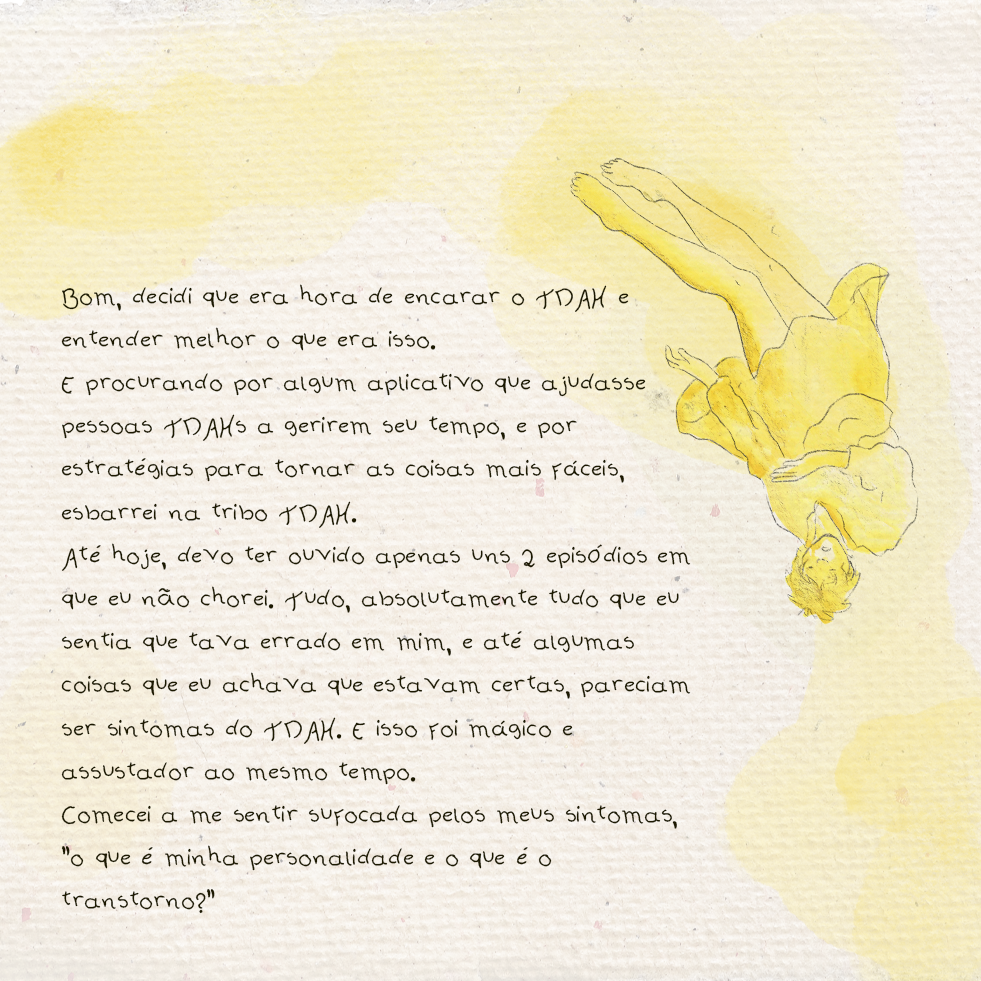 Bom, decidi que era hora de encarar o TDAH e
entender melhor o que era isso.
E procurando por algum aplicativo que ajudasse
pessoas TDAHs a gerirem seu tempo, e por
estratégias para tornar as coisas mais fáceis,
esbarrei na tribo TDAH.
Até hoje, devo ter ouvido apenas uns 2 episódios em
que eu não chorei. Tudo, absolutamente tudo que eu
sentia que tava errado em mim, e até algumas
coisas que eu achava que estavam certas, pareciam
ser sintomas do TDAH. E isso foi mágico e
assustador ao mesmo tempo.
Comecei a me sentir sufocada pelos meus sintomas,
"o que é minha personalidade e o que é o
transtorno?"